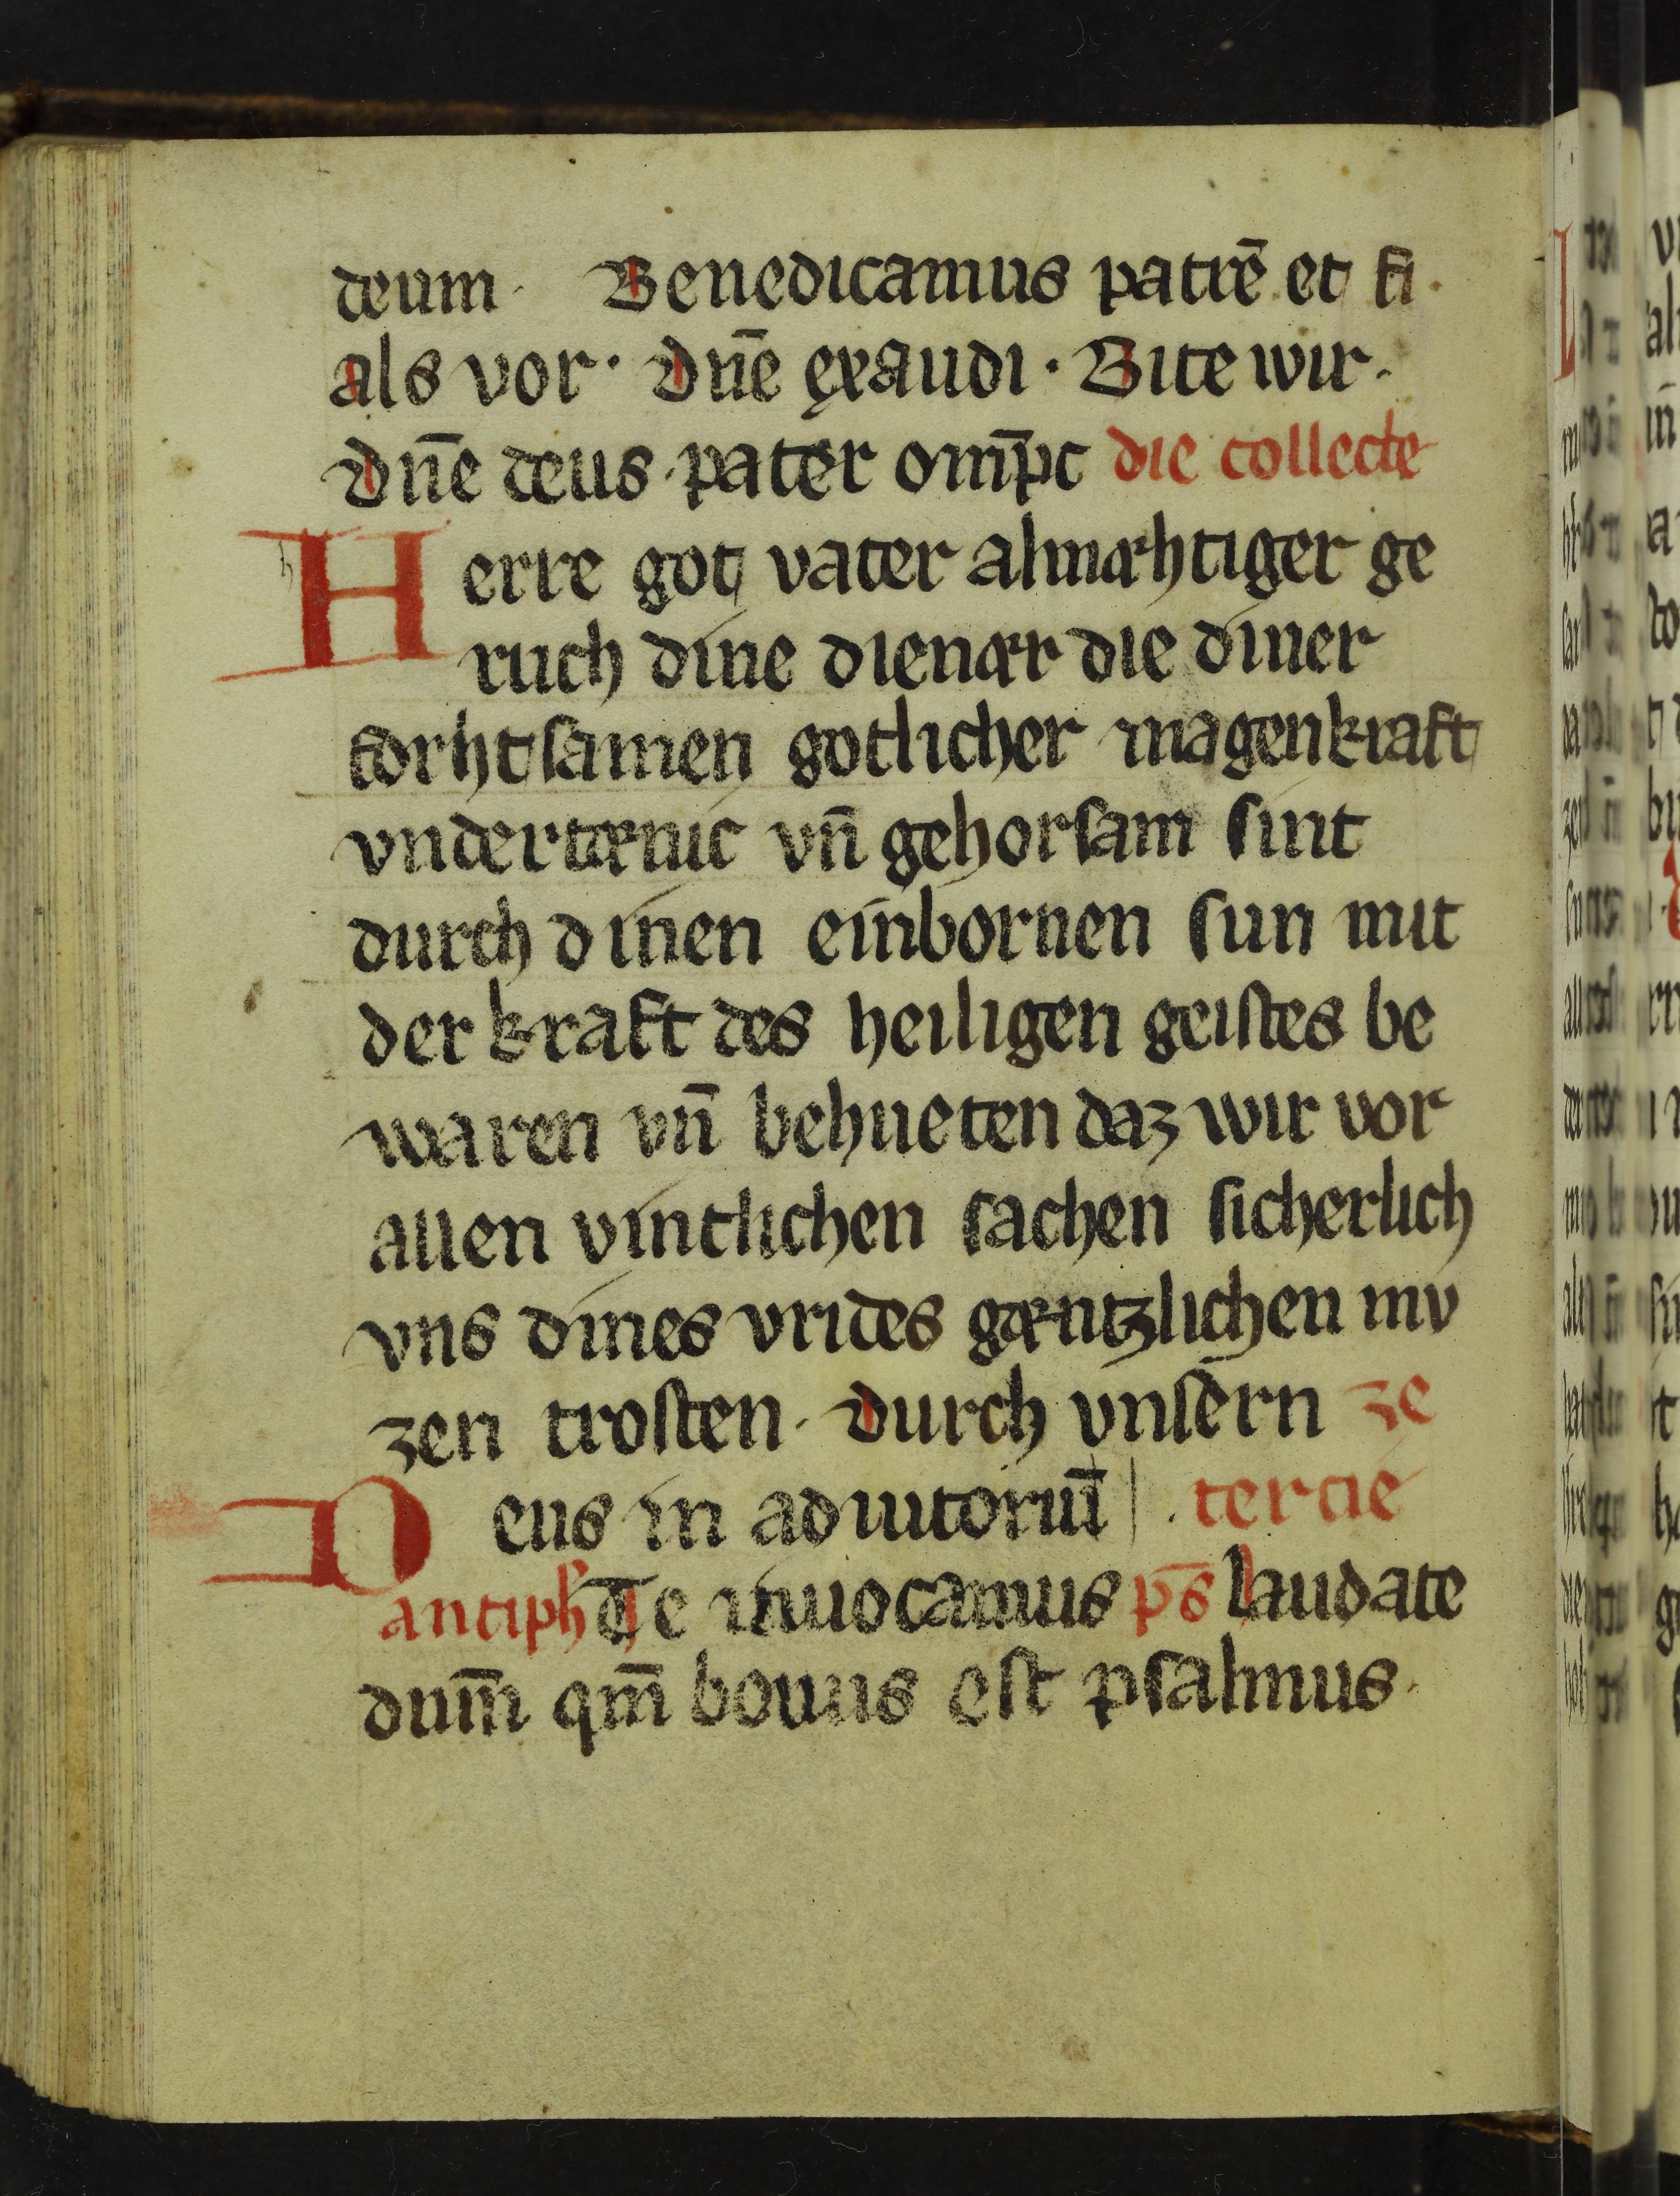 deum · Benedicamus patrē et fi ·
als vor · Dn̄e exaudi · Bite wir ·
Dn̄e deus · pater om̄pc die collecte
Herre got vater almæhtiger ge
ruch dine dienær die diner
vorhtsamen gotlicher magenkraft
vndertænic vn̄ gehorsam sint
durch dinen einbornen sun mit
der kraft des heiligen geistes be
waren vn̄ behueten daz wir vor
allen vintlichen sachen sicherlich
vns dines vrides gæntzlichen mv
zen trosten · Durch vnsern ze
Deus in adiutoriū · tercie
antiph Te inuocamus ps̄ laudate
dnm̄ qm̄ bonus est psalmus ·